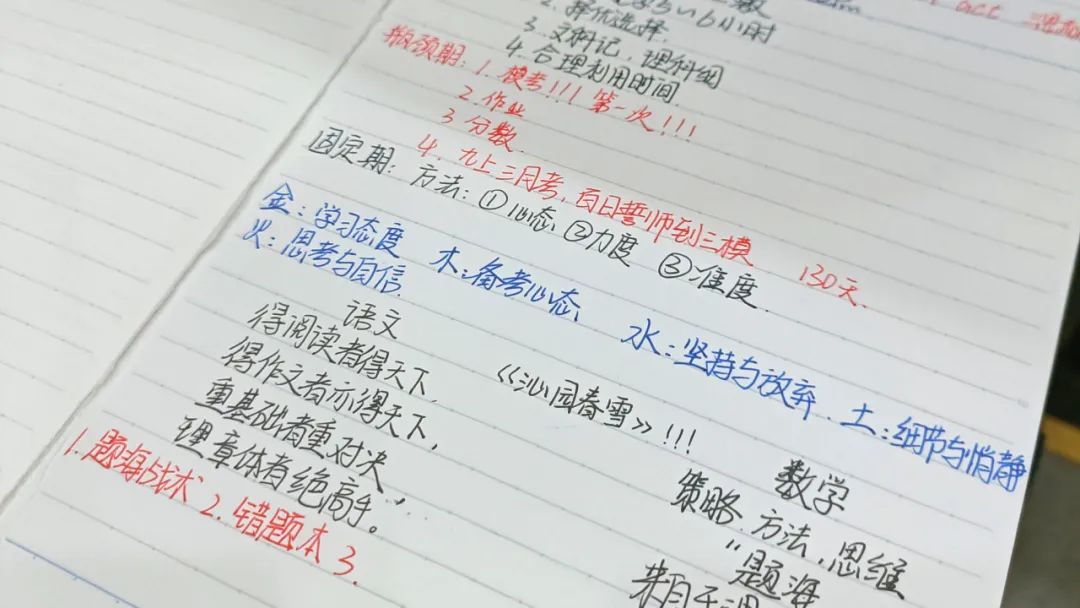 2. 择优选择.
3. 文科记，理科细
4. 合理利用时间.
瓶颈期: 1. 模考!!! 第一次!!!
2. 作业
3 分数.
4. 九上三月考, 百日誓师到三模 130天.
固定期: 方法: ①心态 ②力度 ③准度.
金: 学习态度 木: 备考心态 水: 坚持与放弃. 土: 细节与悄静
火: 思考与自信.
语文
得阅读者得天下.
得作文者示得天下,
重基础者重对决
理章体有绝高手。
《沁园春雪》!!!
1. 题海战术 2. 错题本 3.
数学
策略. 方法, 思维
"题海